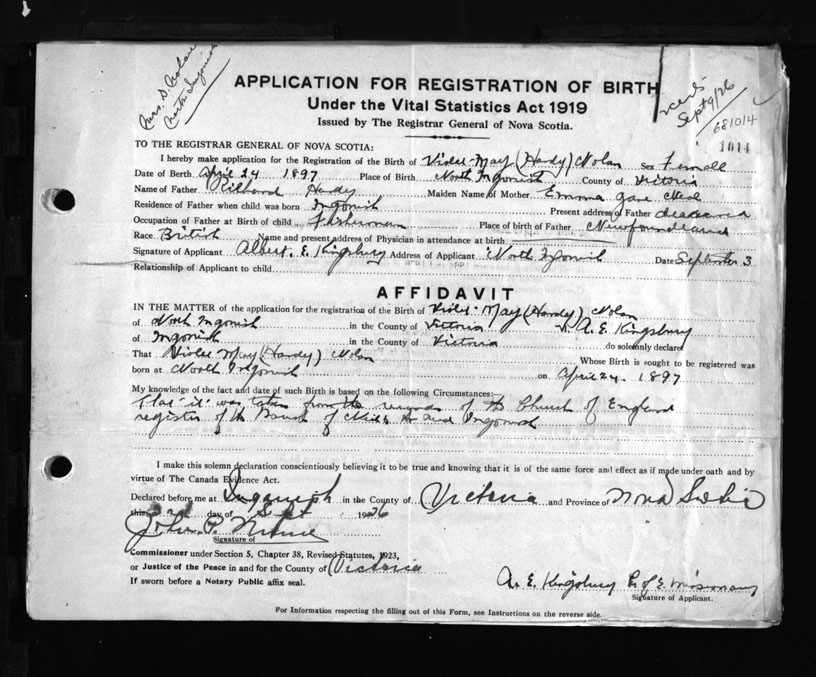 Mrs. D. Nolan
North Ingonish
APPLICATION FOR REGISTRATION OF BIRTH
Under the Vital Statistics Act 1919
Issued by The Registrar General of Nova Scotia.
Sept 9/26
681014
1014
TO THE REGISTRAR GENERAL OF NOVA SCOTIA:
I hereby make application for the Registration of the Birth of Violet May (Hardy) Nolan Sex Female
Date of Birth April 24 1897 Place of Birth North Ingonish County of Victoria
Name of Father Hardy Maiden Name of Mother Emma Jane
Residence of Father when child was born Ingonish Present address of Father deceased
Occupation of Father at Birth of child Fisherman Place of birth of Father Newfoundland
Race British Name and present address of Physician in attendance at birth
Signature of Applicant Albert E. Kingsbury Address of Applicant North Ingonish Date September 3
Relationship of Applicant to child
AFFIDAVIT
IN THE MATTER of the application for the registration of the Birth of Violet May (Hardy) Nolan
of North Ingonish in the County of Victoria A. E. Kingsbury
of Ingonish in the County of Victoria do solemnly declare
That Violet May (Hardy) Nolan Whose Birth is sought to be registered was
born at North Ingonish on April 24. 1897
My knowledge of the fact and date of such Birth is based on the following Circumstances:
That it was taken from the records of the Church of England
register of the of and Ingonish
I make this solemn declaration conscientiously believing it to be true and knowing that it is of the same force and effect as if made under oath and by
virtue of The Canada Evidence Act.
Declared before me at Ingonish in the County of Victoria and Province of Nova Scotia
this day of Sept 1926
John P.
Signature of
Commissioner under Section 5, Chapter 38, Revised Statutes, 1923,
or Justice of the Peace in and for the County of Victoria
If sworn before a Notary Public affix seal.
A. E. Kingsbury C. of E. Missionary
Signature of Applicant.
For Information respecting the filling out of this Form, see Instructions on the reverse side.